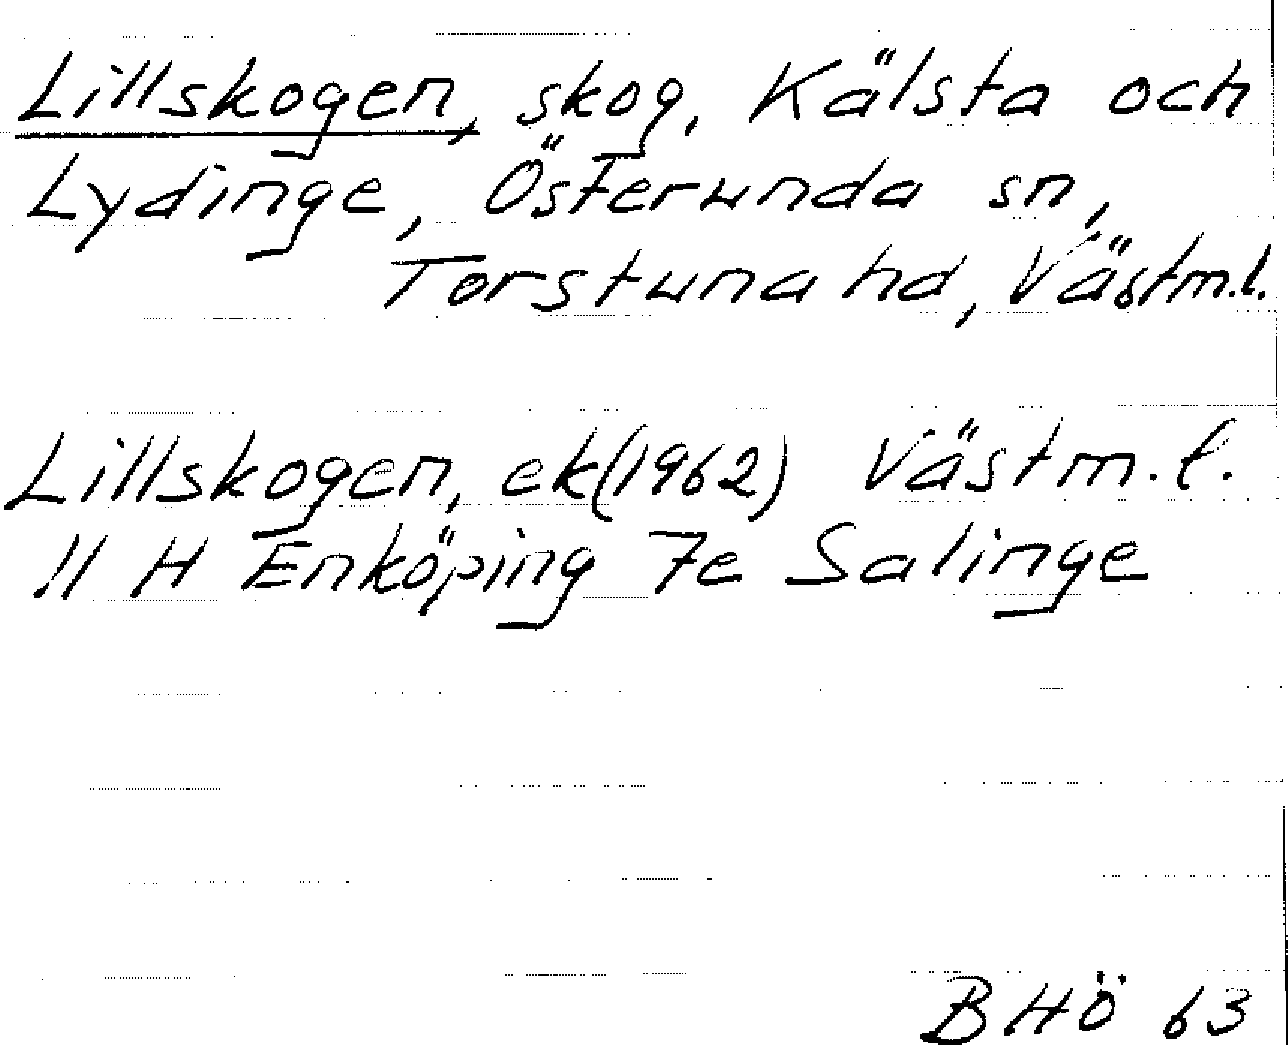 Lillskogen, skog, Kälsta och
Lydinge, Österunda sn,
Torstuna hd, Västm.l.
Lillskogen, ek(1962) Västm.l.
11 H Enköping 7e Salinge
BHÖ 63